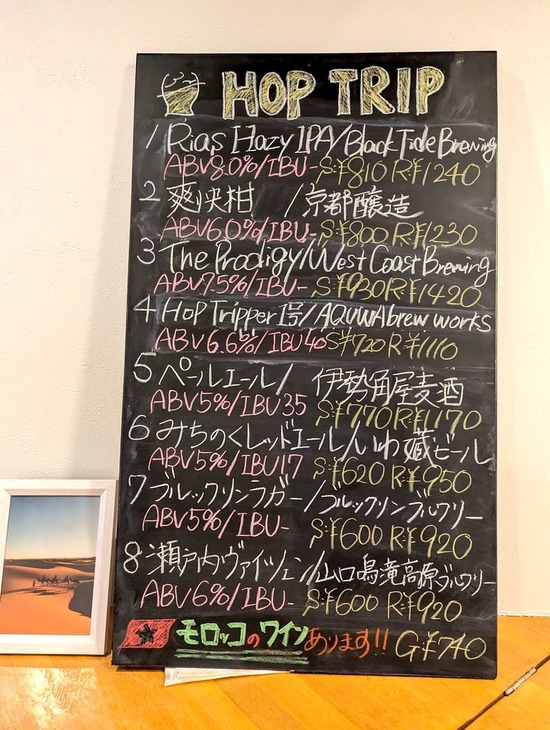 HOP TRIP
1 Rias Hazy IPA/Black Tide Brewing
ABV8.0%/IBU- S:¥810 R:¥1240
2 爽快柑 /京都醸造
ABV6.0%/IBU- S:¥800 R:¥1230
3 The Prodigy/West Coast Brewing
ABV7.5%/IBU- S:¥930 R:¥1420
4 HOP Tripper 1号/AQUWA brew works
ABV6.6%/IBU40 S:¥720 R:¥1110
5 ペールエール/ 伊勢角屋麦酒
ABV5%/IBU35 S:¥770 R:¥1170
6 みちのくレッドエール/いわて蔵ビール
ABV5%/IBU17 S:¥620 R:¥950
7 ブルックリンラガー/ブルックリンブルワリー
ABV5%/IBU- S:¥600 R:¥920
8 瀬戸内ヴァイツェン/山口鳴滝高原ブルワリー
ABV6%/IBU- S:¥600 R:¥920
モロッコのワインあります!! G:¥740